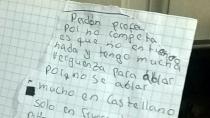 Perdon profe
por no competa
es que no entiendo
nada y tengo mucha
verguenza para ablar
porque no se ablar
mucho en castellano
solo en